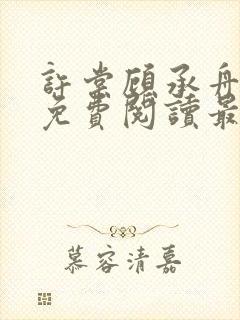 許棠顧承舟
免費閱讀最
慕容清嘉